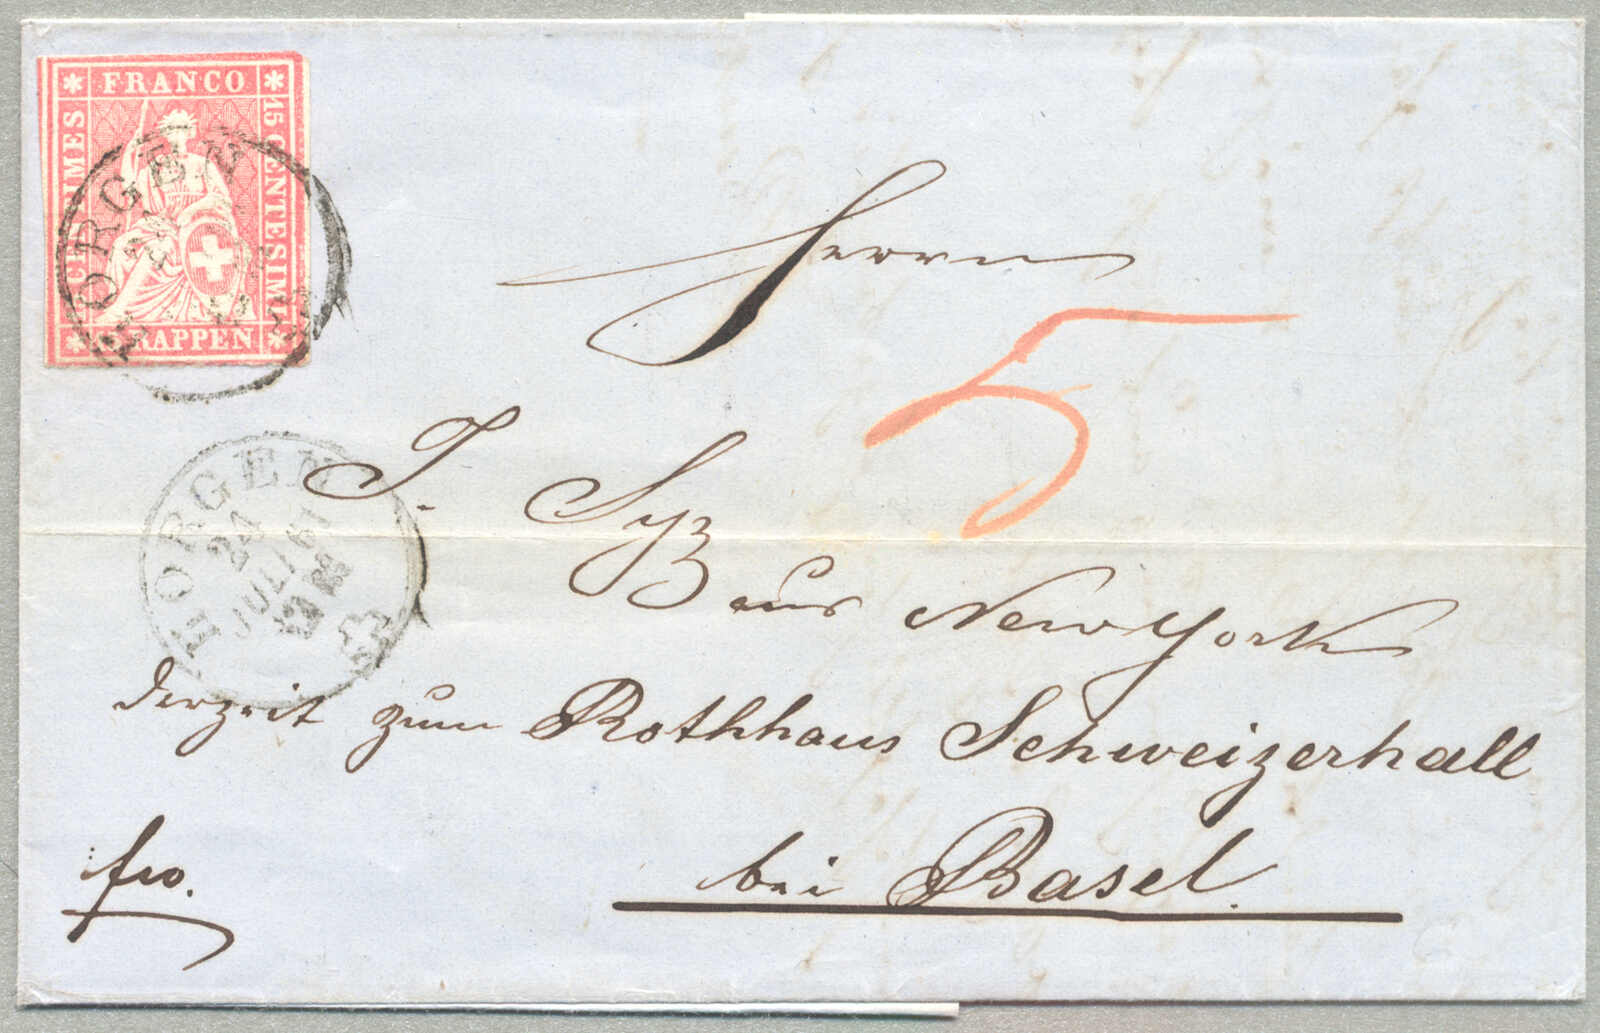 FRANCO
15 CENTESIMI
15 RAPPEN
CENTIMES
HORGEN
HORGEN
24
JULI 61
Herrn
5
J. Syz aus New York
derzeit zum Rothhaus Schweizerhall
bei Basel.
fco.